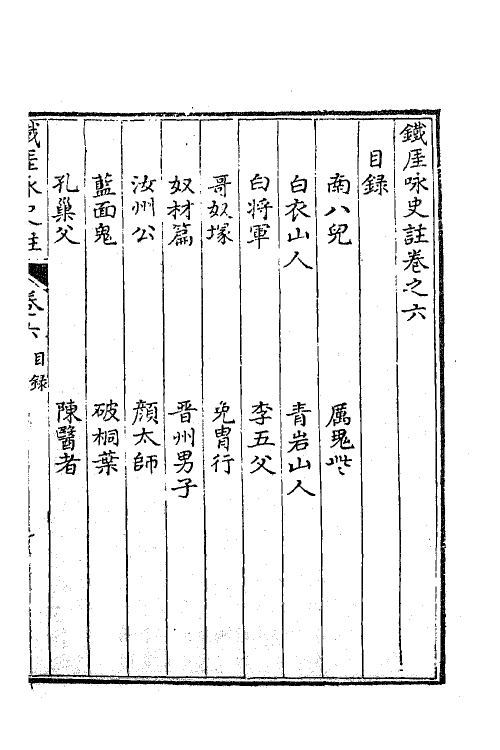 鐵厓咏史註卷之六
目録
南八兒　厲鬼些
白衣山人　青岩山人
白将軍　李五父
哥奴塚　免胄行
奴材篇　晋州男子
汝州公　顔太師
藍面鬼　破桐葉
孔巢父　陳醫者
鐵厓咏史註　卷六　目録